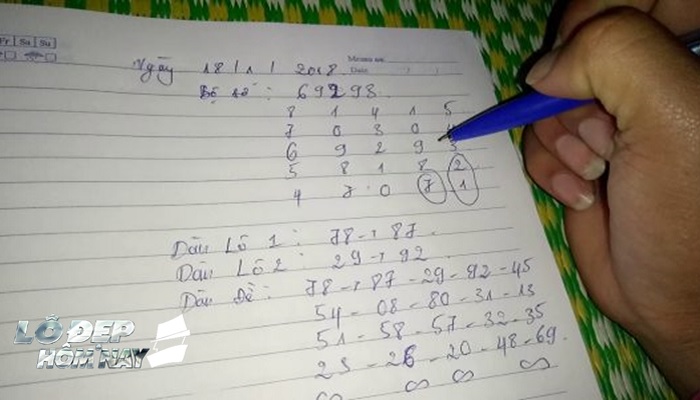 Fr Sa Su
Memo No.
Date / /
Ngày 18/1/2018.
Bộ số: 69298.
8 1 4 1 5
7 0 3 0 4
6 9 2 9 3
5 8 1 8 2
4 7 0 7 1
Dàn Lô 1: 78 → 87.
Dàn Lô 2: 29 → 92.
Dàn Đề: 78 → 87 - 29 - 92 - 45
54 - 08 - 80 - 31 - 13
51 - 58 - 57 - 32 - 35
23 - 26 - 20 - 48 - 69.
LÔ ĐẸP
HÔM NAY